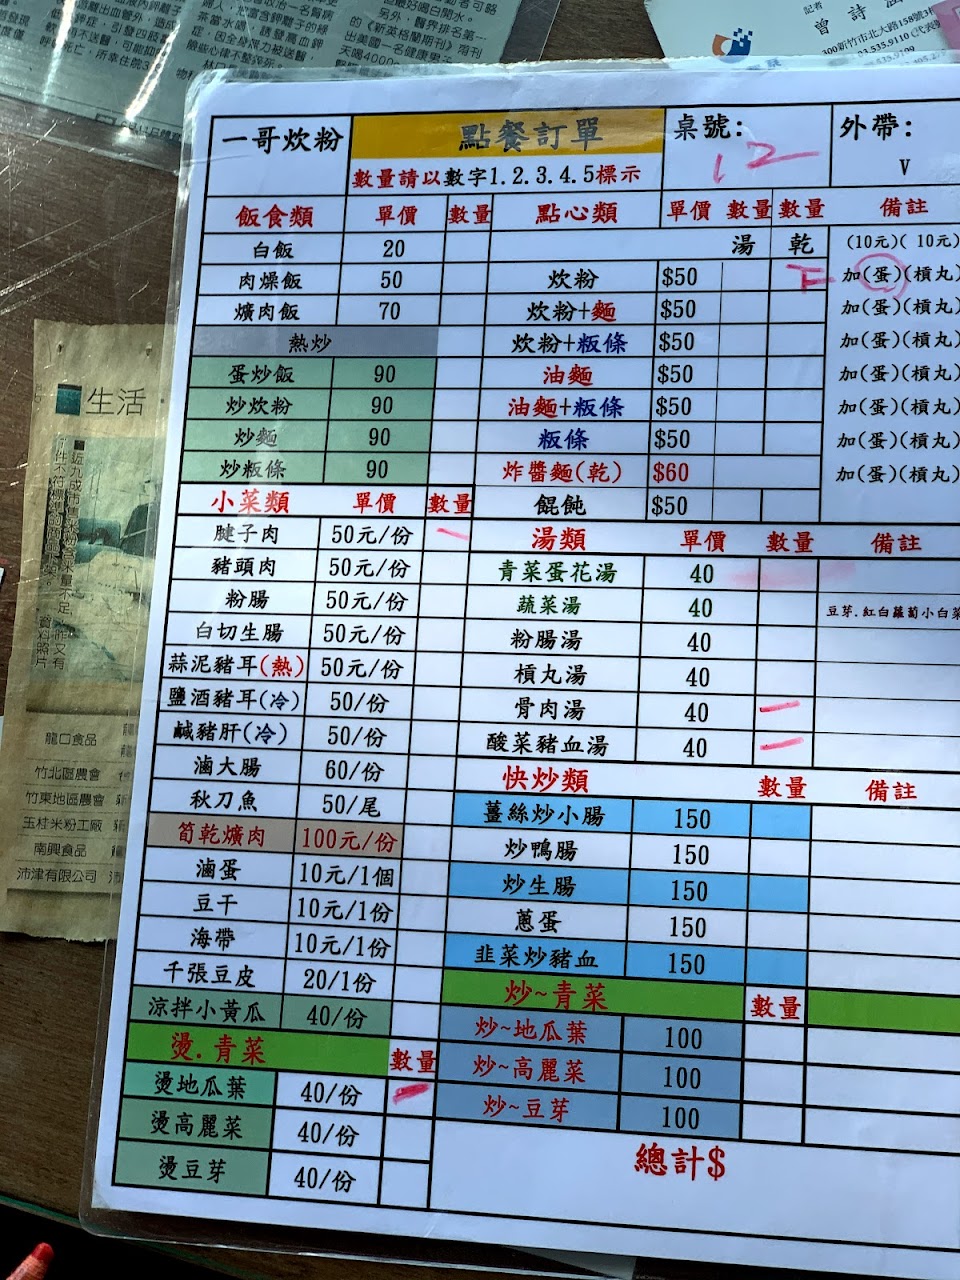 記者
曾詩
300新竹市北大路158號3
一哥炊粉 點餐訂單 桌號: 12 外帶:
數量請以數字1.2.3.4.5標示 V
飯食類 單價 數量 點心類 單價 數量 數量 備註
白飯 20 湯 乾 (10元)( 10元)
肉燥飯 50 炊粉 $50 加(蛋)(槓丸)
爌肉飯 70 炊粉+麵 $50 加(蛋)(槓丸)
熱炒 炊粉+粄條 $50 加(蛋)(槓丸)
蛋炒飯 90 油麵 $50 加(蛋)(槓丸)
炒炊粉 90 油麵+粄條 $50 加(蛋)(槓丸)
炒麵 90 粄條 $50 加(蛋)(槓丸)
炒粄條 90 炸醬麵(乾) $60 加(蛋)(槓丸)
小菜類 單價 數量 餛飩 $50
腱子肉 50元/份 一 湯類 單價 數量 備註
豬頭肉 50元/份 青菜蛋花湯 40
粉腸 50元/份 蔬菜湯 40 豆芽.紅白蘿蔔小白菜
白切生腸 50元/份 粉腸湯 40
蒜泥豬耳(熱) 50元/份 槓丸湯 40
鹽酒豬耳(冷) 50/份 骨肉湯 40 一
鹹豬肝(冷) 50/份 酸菜豬血湯 40 一
滷大腸 60/份 快炒類 數量 備註
秋刀魚 50/尾 薑絲炒小腸 150
筍乾爌肉 100元/份 炒鴨腸 150
滷蛋 10元/1個 炒生腸 150
豆干 10元/1份 蔥蛋 150
海帶 10元/1份 韭菜炒豬血 150
千張豆皮 20/1份 炒~青菜 數量
涼拌小黃瓜 40/份 炒~地瓜葉 100
燙.青菜 數量 炒~高麗菜 100
燙地瓜葉 40/份 一 炒~豆芽 100
燙高麗菜 40/份 總計$
燙豆芽 40/份
生活
龍口食品
竹北區農會
竹東地區農會
玉桂米粉工廠
南興食品
沛津有限公司